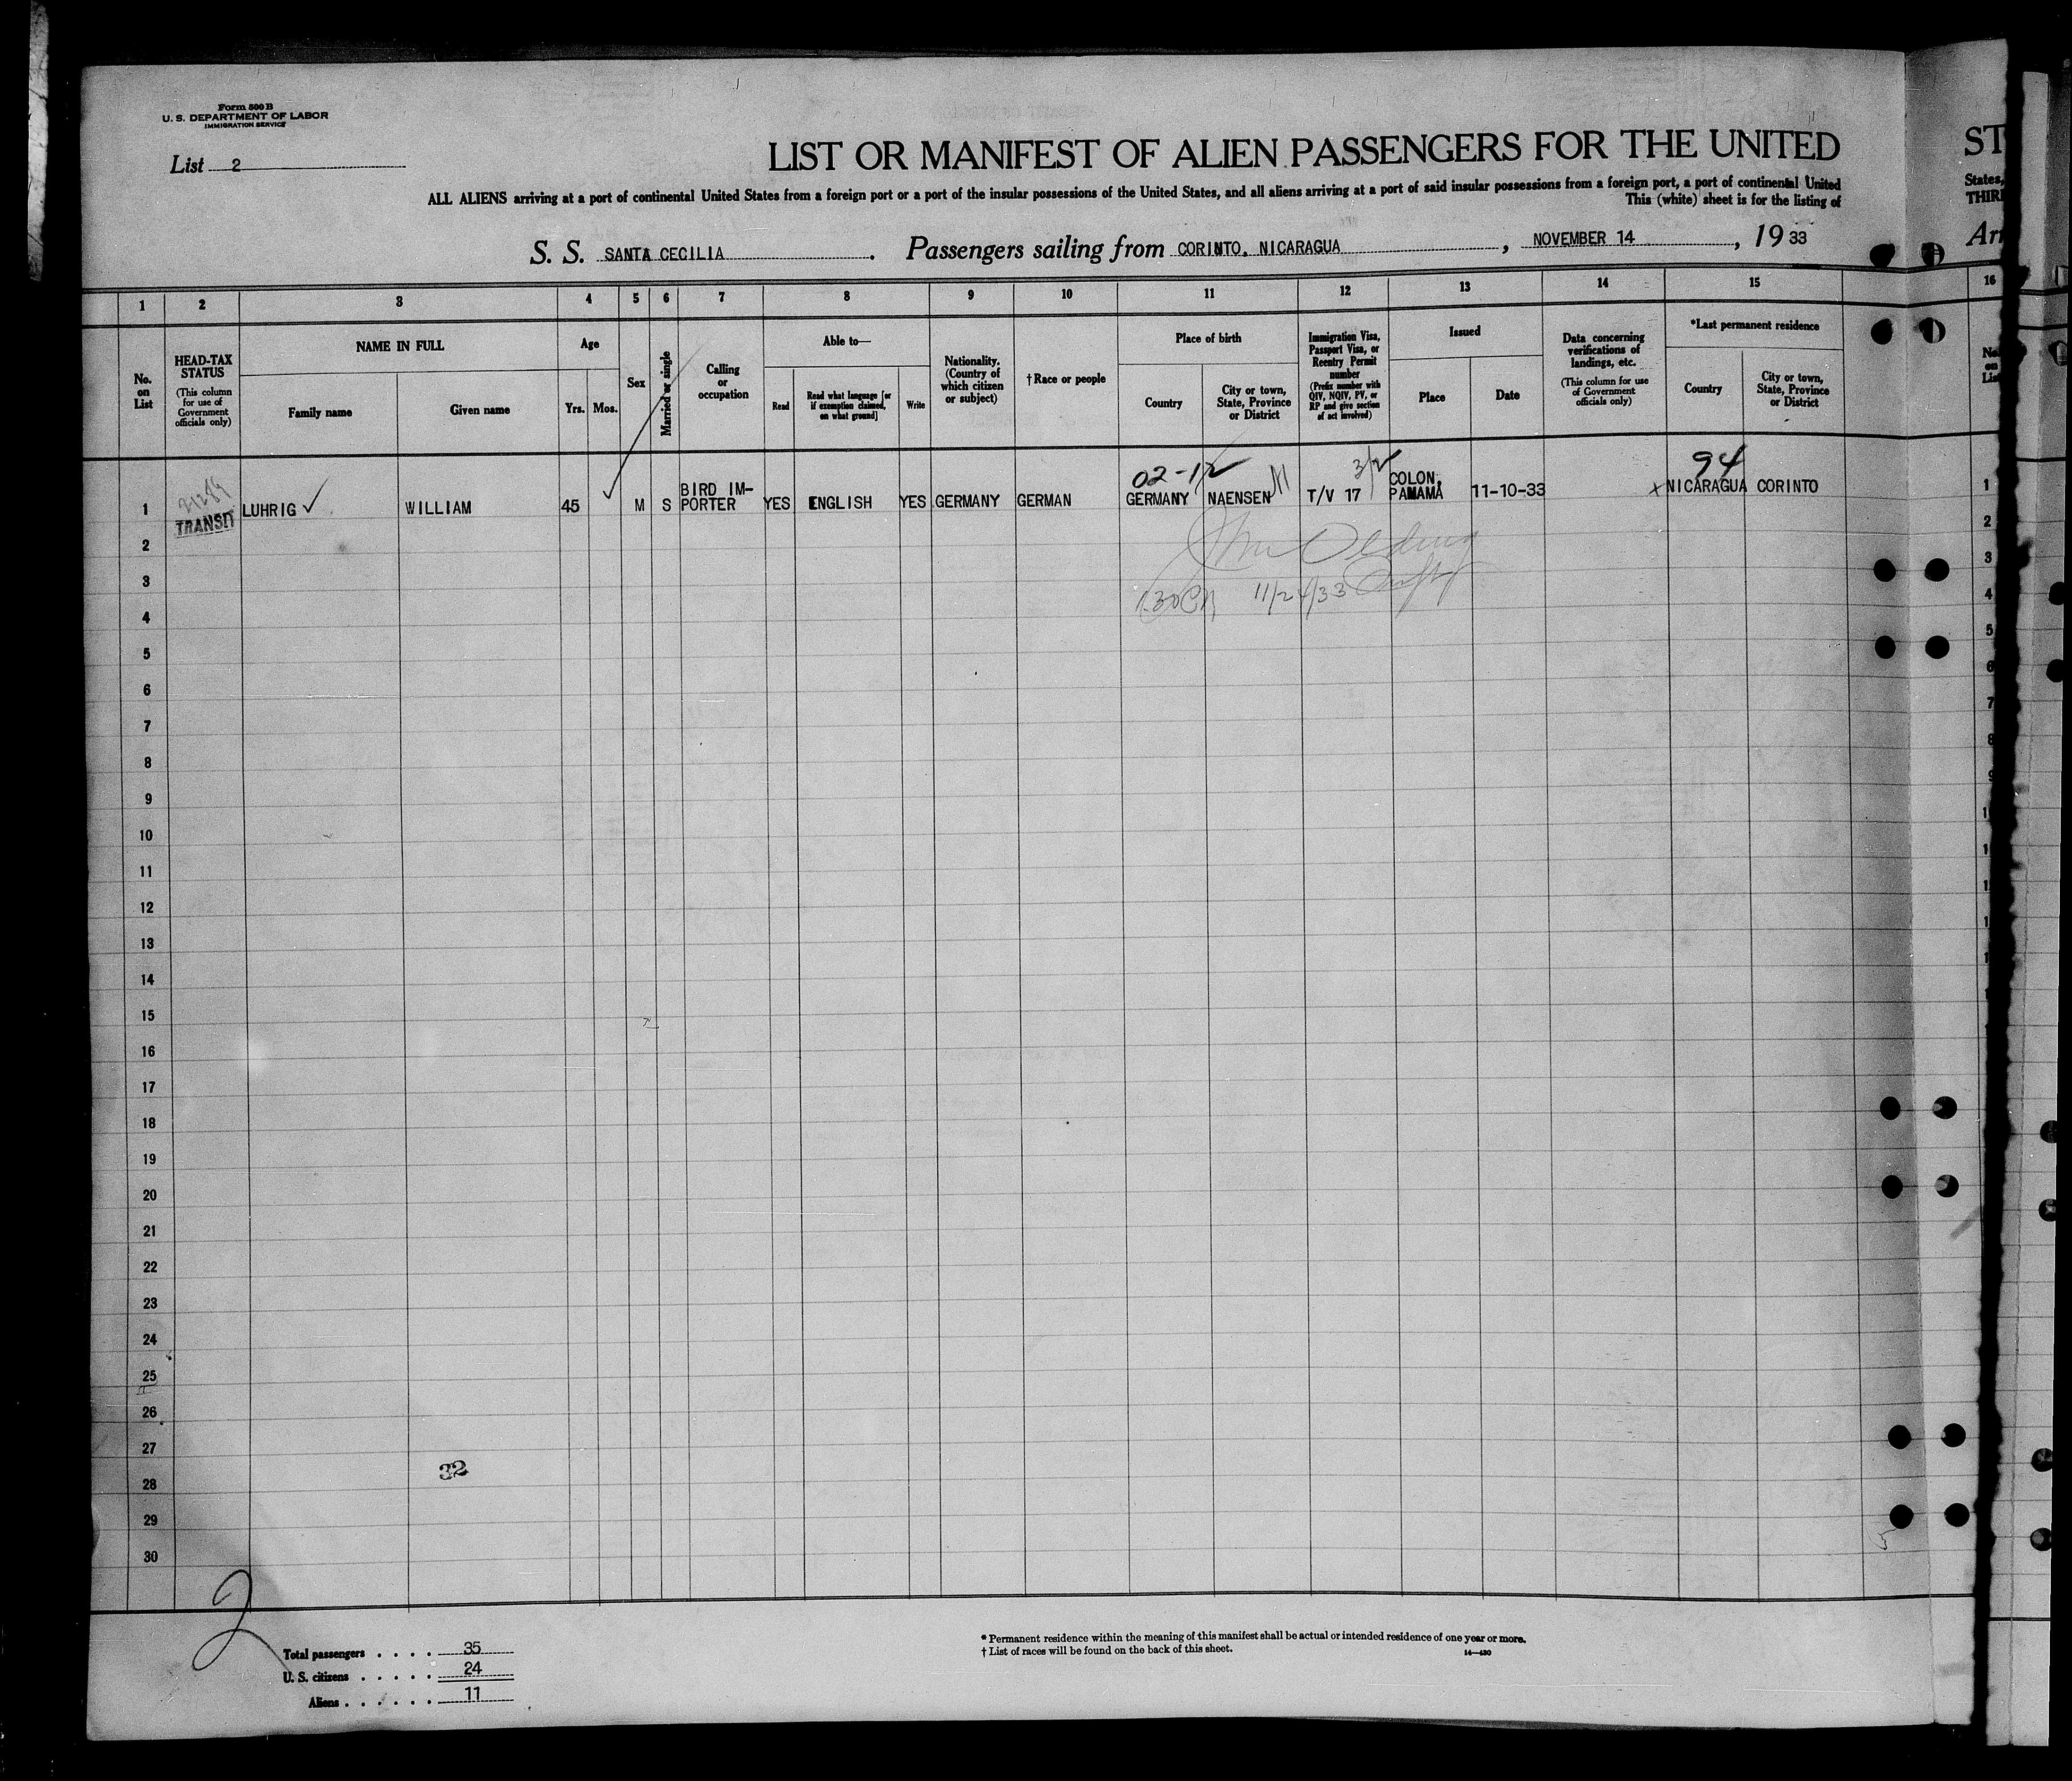 Form 500 B
U. S. DEPARTMENT OF LABOR
IMMIGRATION SERVICE
List 2
LIST OR MANIFEST OF ALIEN PASSENGERS FOR THE UNITED
ST
ALL ALIENS arriving at a port of continental United States from a foreign port or a port of the insular possessions of the United States, and all aliens arriving at a port of said insular possessions from a foreign port, a port of continental United
States,
This (white) sheet is for the listing of
S. S. SANTA CECILIA. Passengers sailing from CORINTO, NICARAGUA, NOVEMBER 14, 1933
1 2 3 4 5 6 7 8 9 10 11 12 13 14 15 16
No. on List
HEAD-TAX STATUS (This column for use of Government officials only)
NAME IN FULL
Family name
Given name
Age
Yrs.
Mos.
Sex
Married or single
Calling or occupation
Able to—
Read
Read what language [or if exemption claimed, on what ground]
Write
Nationality. (Country of which citizen or subject)
†Race or people
Place of birth
Country
City or town, State, Province or District
Immigration Visa, Passport Visa, or Reentry Permit number (Prefix number with QIV, NQIV, PV, or RP and give section of act involved)
Issued
Place
Date
Data concerning verifications of landings, etc. (This column for use of Government officials only)
*Last permanent residence
Country
City or town, State, Province or District
02-1/2
94
1 TRANSIT LUHRIG ✓ WILLIAM 45 M S BIRD IM-PORTER YES ENGLISH YES GERMANY GERMAN GERMANY NAENSEN T/V 17 COLON, PANAMA 11-10-33 x NICARAGUA CORINTO 1
11/24/33
2
3
4
5
6
7
8
9
10
11
12
13
14
15
16
17
18
19
20
21
22
23
24
25
26
27
28
29
30
32
2
Total passengers . . . . 35
U. S. citizens . . . . . 24
Aliens . . . . . . 11
* Permanent residence within the meaning of this manifest shall be actual or intended residence of one year or more.
† List of races will be found on the back of this sheet.
14—430